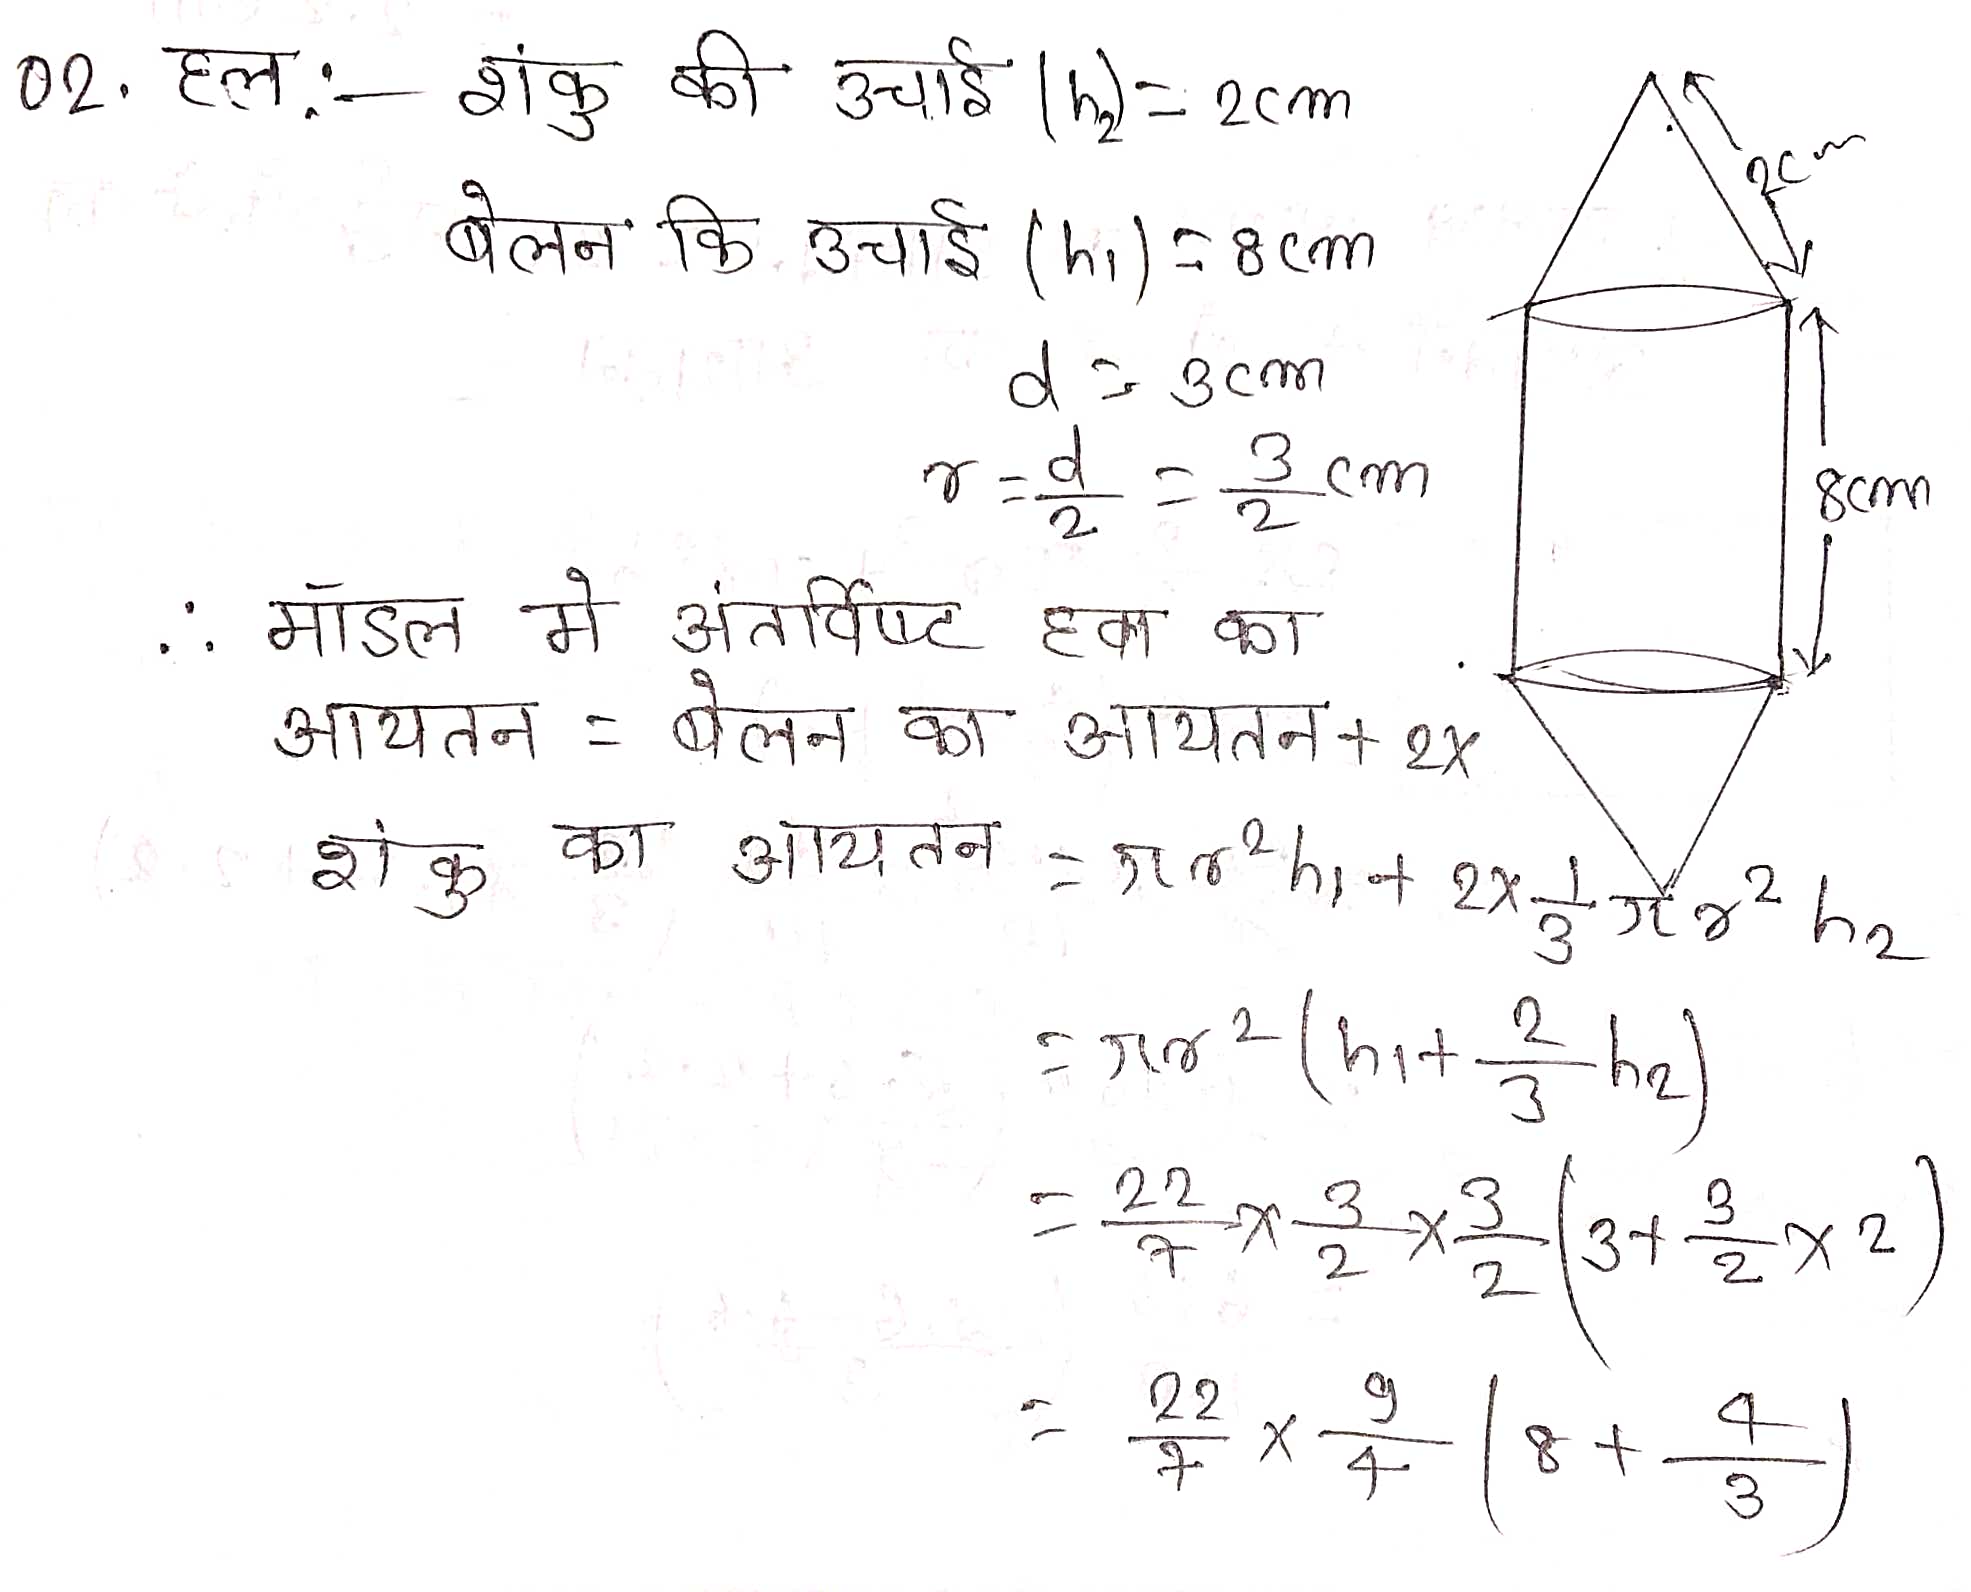 02. हल:- शंकु की उचाई (h₂) = 2cm
2cm
बेलन कि उचाई (h₁) = 8cm
d = 3cm
r = d/2 = 3/2 cm
8cm
∴ मॉडल मे अंतर्विष्ट हवा का
आयतन = बेलन का आयतन + 2×
शंकु का आयतन = πr²h₁ + 2×1/3 πr²h₂
= πr² (h₁ + 2/3 h₂)
= 22/7 × 3/2 × 3/2 (3 + 3/2 × 2)
= 22/7 × 9/4 (8 + 4/3)